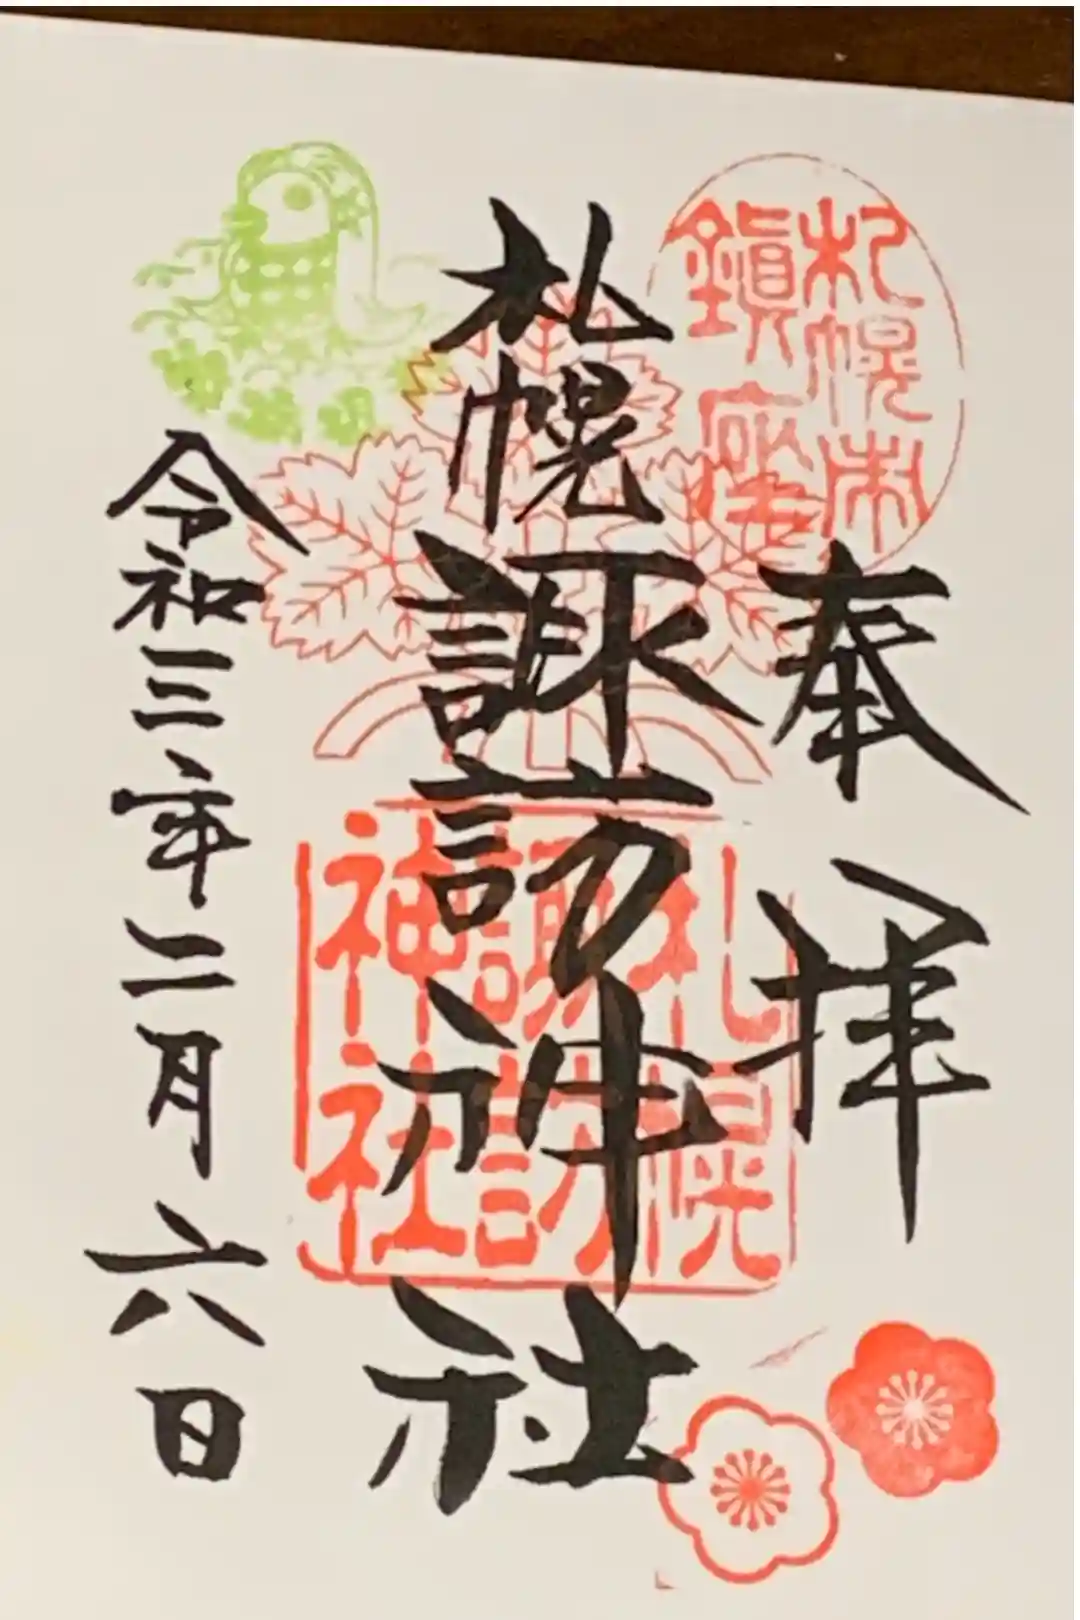 奉拝
札幌市
鎮座
札幌諏訪神社
札幌
諏訪
神社
令和三年二月六日